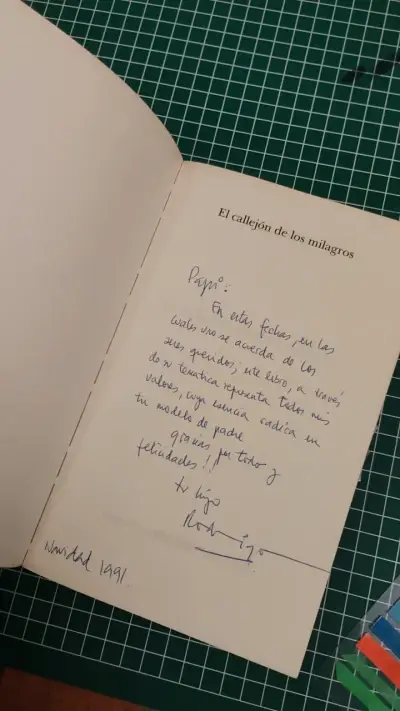 El callejón de los milagros
Papi:
En estas fechas, en las
cuales uno se acuerda de los
seres queridos; este libro, a través
de su tematica representa todos mis
valores, cuya esencia radica en
tu modelo de padre
gracias por todo y
felicidades!!
tu hijo
Rodrigo
Navidad 1991.